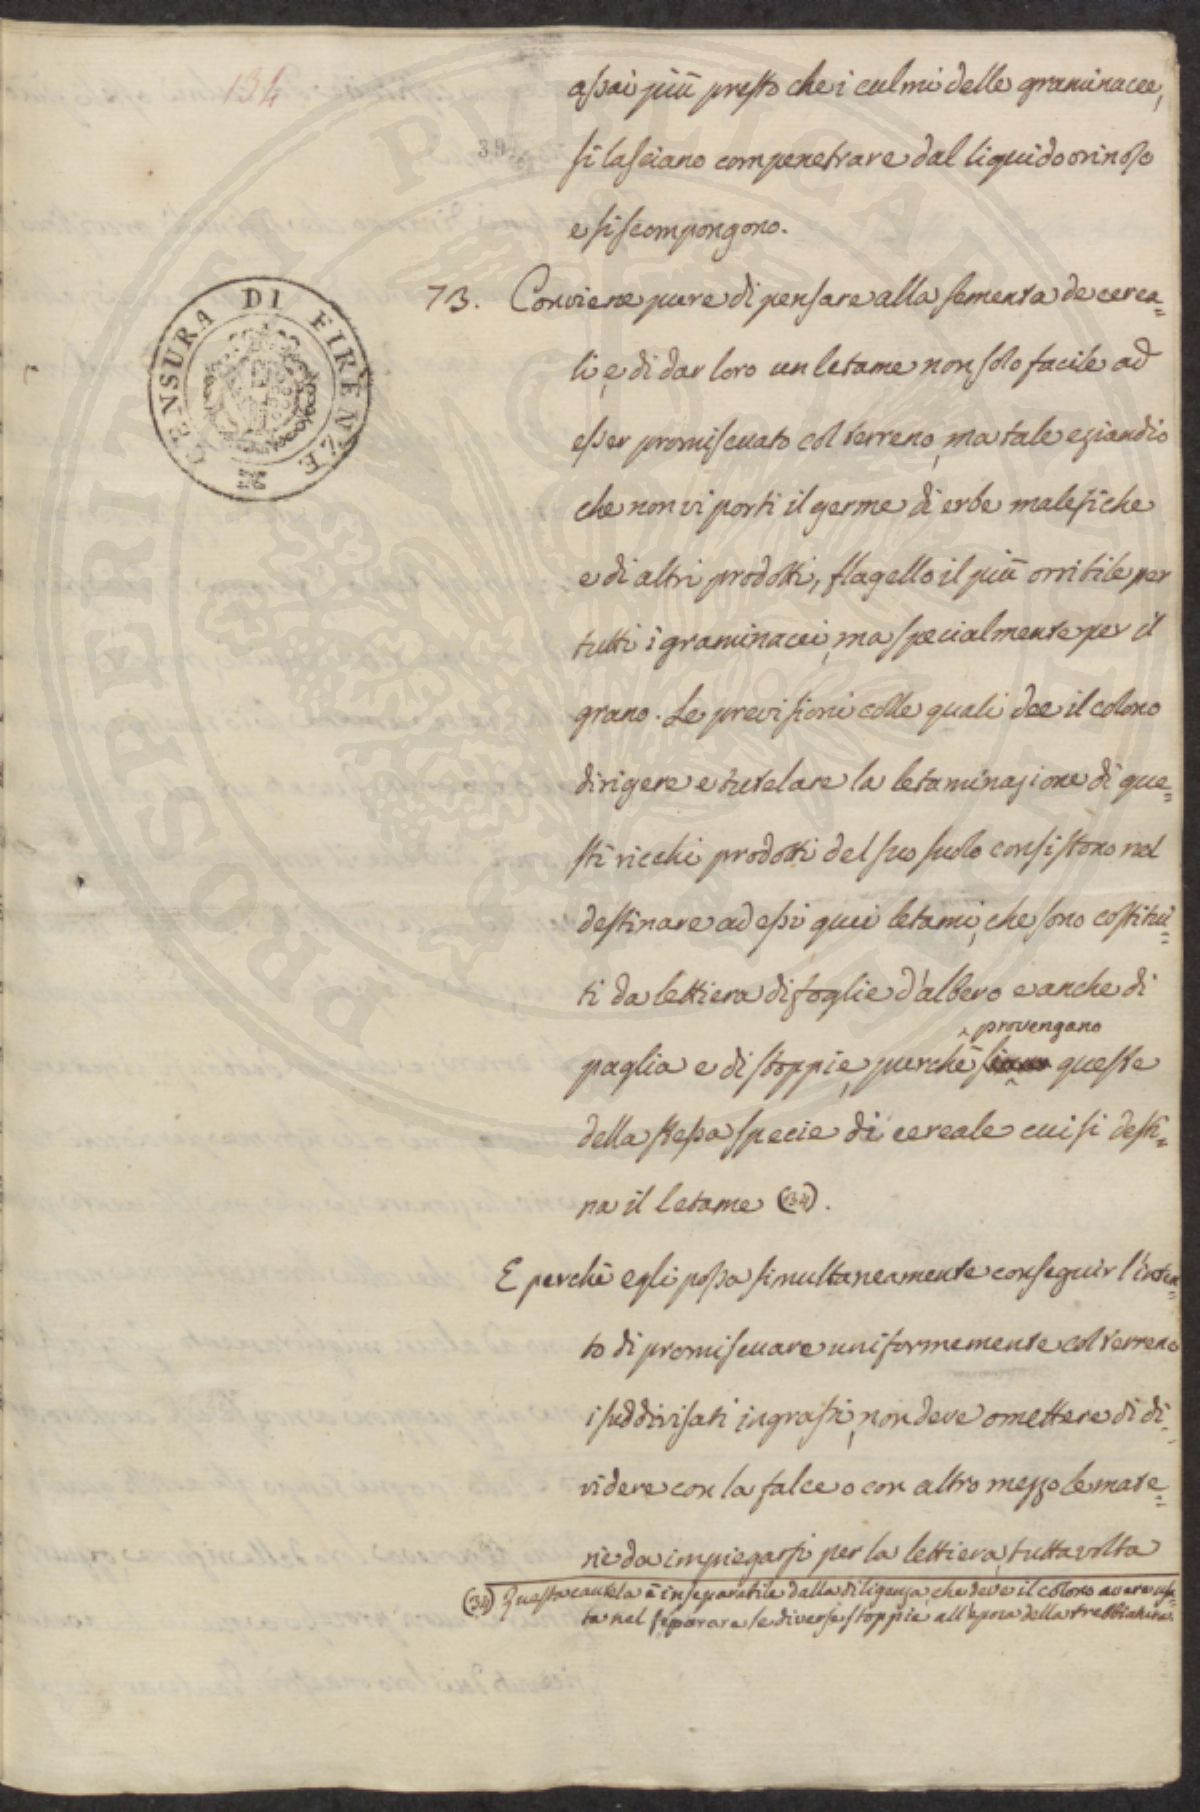 134
39
assai più presto che i culmi delle graminacee,
si lasciano compenetrare dal liquido orinoso
e si scompongono.
73. Conviene pure di pensare alla sementa de cerea=
li, e di dar loro un letame non solo facile ad
esser promiscuato col terreno, ma tale eziandio
che non vi porti il germe di erbe malefiche
e di altri prodotti, flagello il più orribile per
tutti i graminacei, ma specialmente per il
grano. Le previsioni colle quali dee il colono
dirigere e tutelare la letaminazione di que=
sti ricchi prodotti del suo suolo consistono nel
destinare ad essi quei letami, che sono costitui=
ti da lettiera di foglie d'albero e anche di
provengano
paglia e di stoppie, purchè siano queste
della stessa specie di cereale cui si desti=
na il letame (34).
E perchè egli possa simultaneamente conseguir l'inten=
to di promiscuare uniformemente col terreno
i suddivisati ingrassi, non deve omettere di di=
videre con la falce o con altro mezzo le mate=
rie da impiegarsi per la lettiera, tuttavolta
(34) Questa cautela è inseparabile dalla diligenza, che deve il colono avere usa=
ta nel separare le diverse stoppie all'epoca della trebbiatura.
CENSURA DI FIRENZE
PROSPERITATI PVBLICAE AVGENDAE